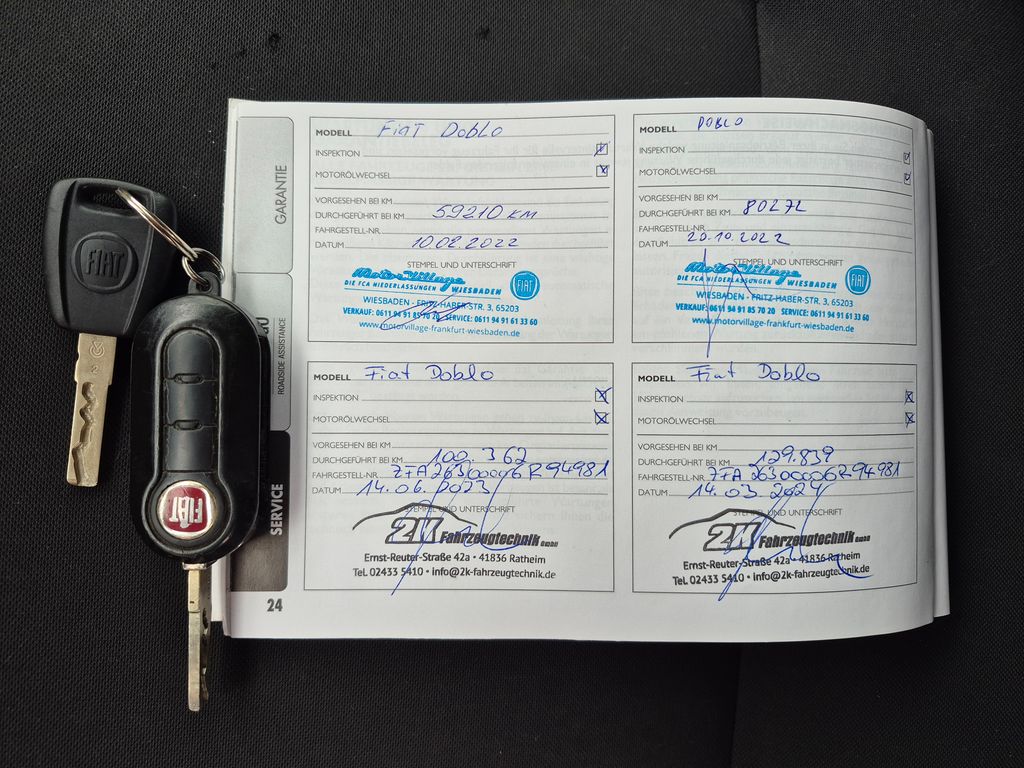 FIAT
FIAT
GARANTIE
ROADSIDE ASSISTANCE
SERVICE
24
MODELL Fiat Doblo
INSPEKTION
MOTORÖLWECHSEL
VORGESEHEN BEI KM
DURCHGEFÜHRT BEI KM 59210 KM
FAHRGESTELL-NR.
DATUM 10.02.2022
STEMPEL UND UNTERSCHRIFT
MotorVillage
DIE FCA NIEDERLASSUNGEN WIESBADEN
FIAT
WIESBADEN - FRITZ-HABER-STR. 3, 65203
VERKAUF: 0611 94 91 85 70 20 SERVICE: 0611 94 91 61 33 60
www.motorvillage-frankfurt-wiesbaden.de
MODELL DOBLO
INSPEKTION
MOTORÖLWECHSEL
VORGESEHEN BEI KM
DURCHGEFÜHRT BEI KM 80272
FAHRGESTELL-NR.
DATUM 20.10.2022
STEMPEL UND UNTERSCHRIFT
MotorVillage
DIE FCA NIEDERLASSUNGEN WIESBADEN
FIAT
WIESBADEN - FRITZ-HABER-STR. 3, 65203
VERKAUF: 0611 94 91 85 70 20 SERVICE: 0611 94 91 61 33 60
www.motorvillage-frankfurt-wiesbaden.de
MODELL Fiat Doblo
INSPEKTION
MOTORÖLWECHSEL
VORGESEHEN BEI KM
DURCHGEFÜHRT BEI KM 100.362
FAHRGESTELL-NR. ZFA26300006R94981
DATUM 14.06.2023
STEMPEL UND UNTERSCHRIFT
2K Fahrzeugtechnik GmbH
Ernst-Reuter-Straße 42a • 41836 Ratheim
Tel. 02433 5410 • info@2k-fahrzeugtechnik.de
MODELL Fiat Doblo
INSPEKTION
MOTORÖLWECHSEL
VORGESEHEN BEI KM
DURCHGEFÜHRT BEI KM 129.839
FAHRGESTELL-NR. ZFA26300006R94981
DATUM 14.03.2024
STEMPEL UND UNTERSCHRIFT
2K Fahrzeugtechnik GmbH
Ernst-Reuter-Straße 42a • 41836 Ratheim
Tel. 02433 5410 • info@2k-fahrzeugtechnik.de